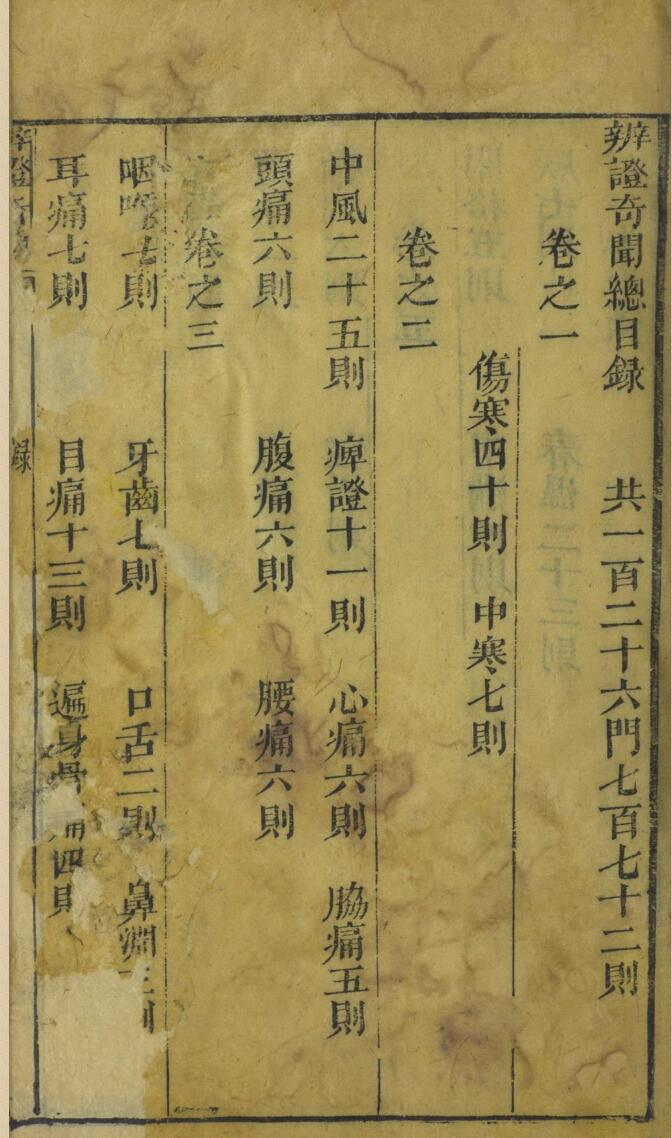 辨證奇聞總目録 共一百二十六門七百七十二則
卷之一
傷寒四十則 中寒七則
卷之二
中風二十五則 痺證十一則 心痛六則 脇痛五則
頭痛六則 腹痛六則 腰痛六則
卷之三
咽喉七則 牙齒七則 口舌二則 鼻淵三則
耳痛七則 目痛十三則 遍身骨痛四則